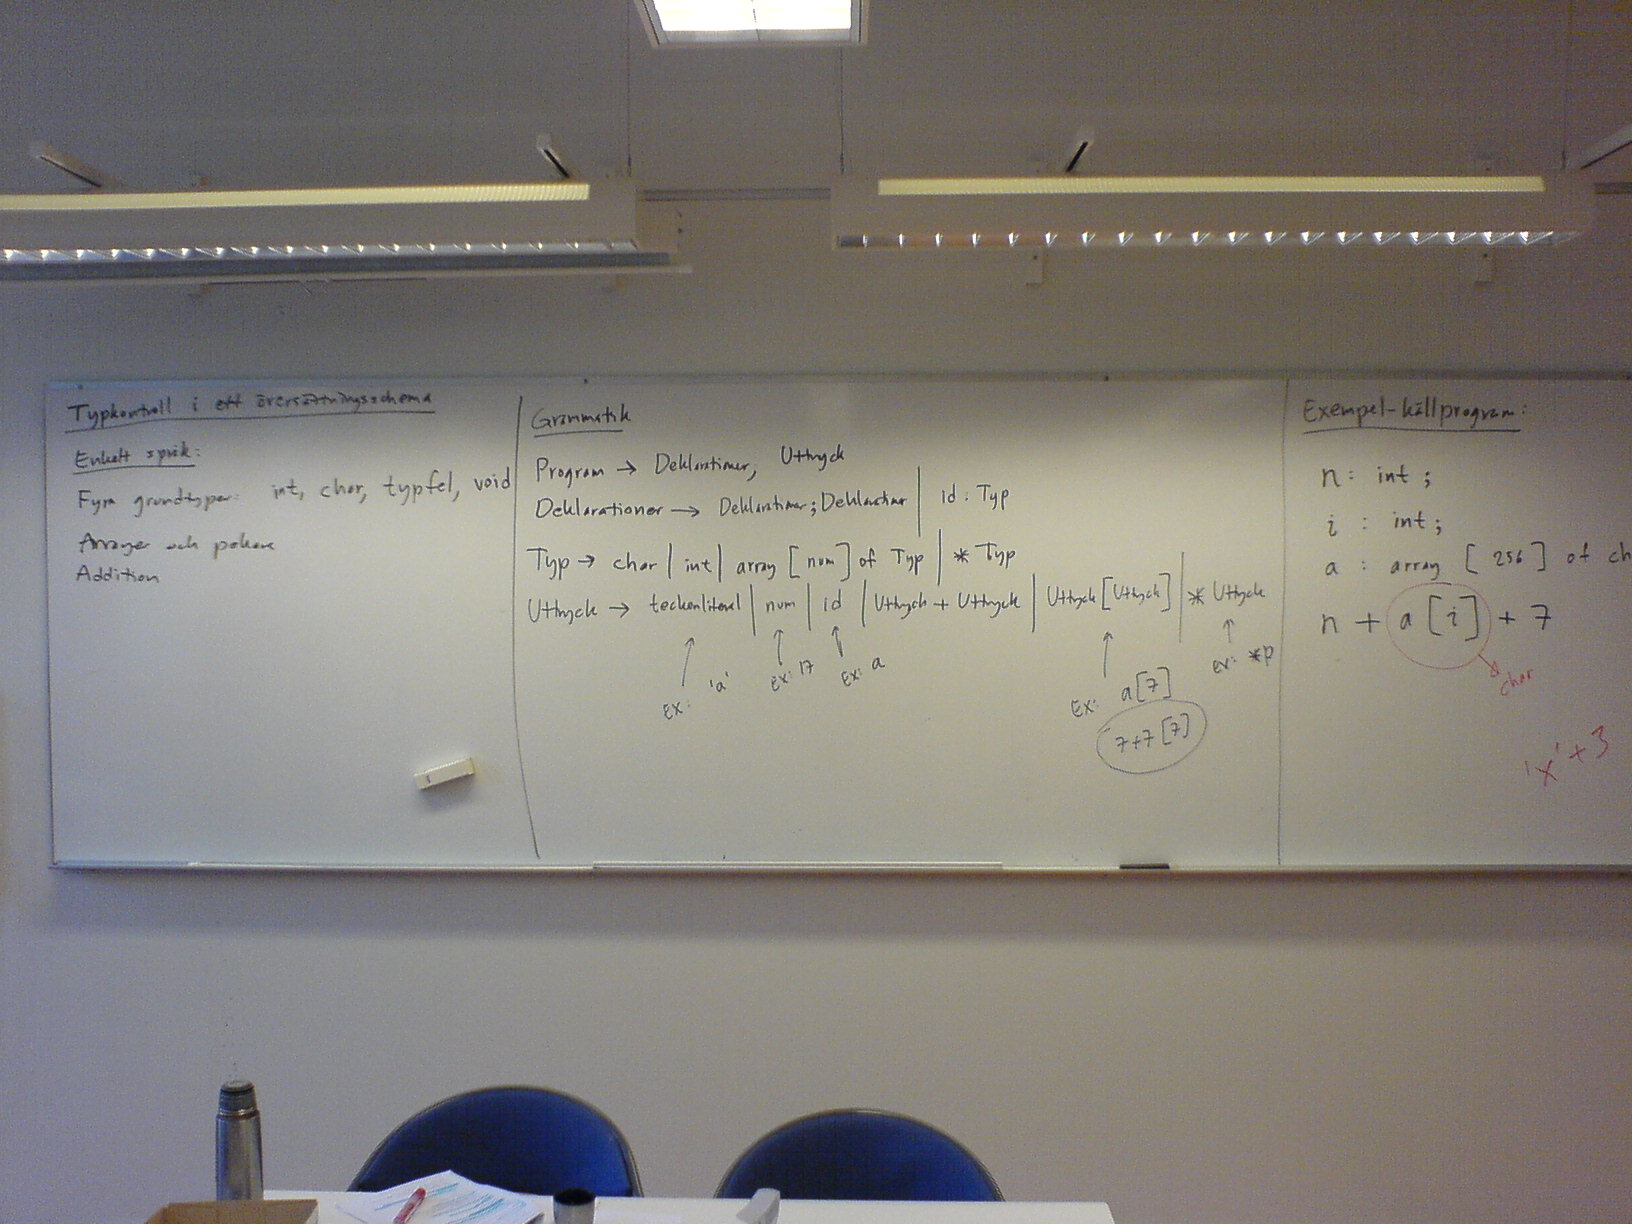 Typkontroll i ett översättningsschema
Enkelt språk:
Fyra grundtyper: int, char, typfel, void
Arrayer och pekare
Addition
Grammatik
Program → Deklarationer, Uttryck
Deklarationer → Deklarationer; Deklarationer | id : Typ
Typ → char | int | array [num] of Typ | * Typ
Uttryck → teckenliteral | num | id | Uttryck + Uttryck | Uttryck [Uttryck] | * Uttryck
Ex: 'a'
Ex: 17
Ex: a
Ex: a[7]
7+7[7]
ex: *p
Exempel-källprogram:
n : int ;
i : int ;
a : array [ 256 ] of ch
n + a [i] + 7
char
'x' + 3